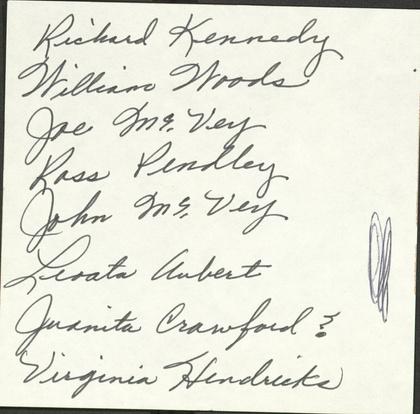 Richard Kennedy
William Woods
Joe Mc. Vey
Ross Pendley
John Mc. Vey
Leoata Aubert
Juanita Crawford &
Virginia Hendricks